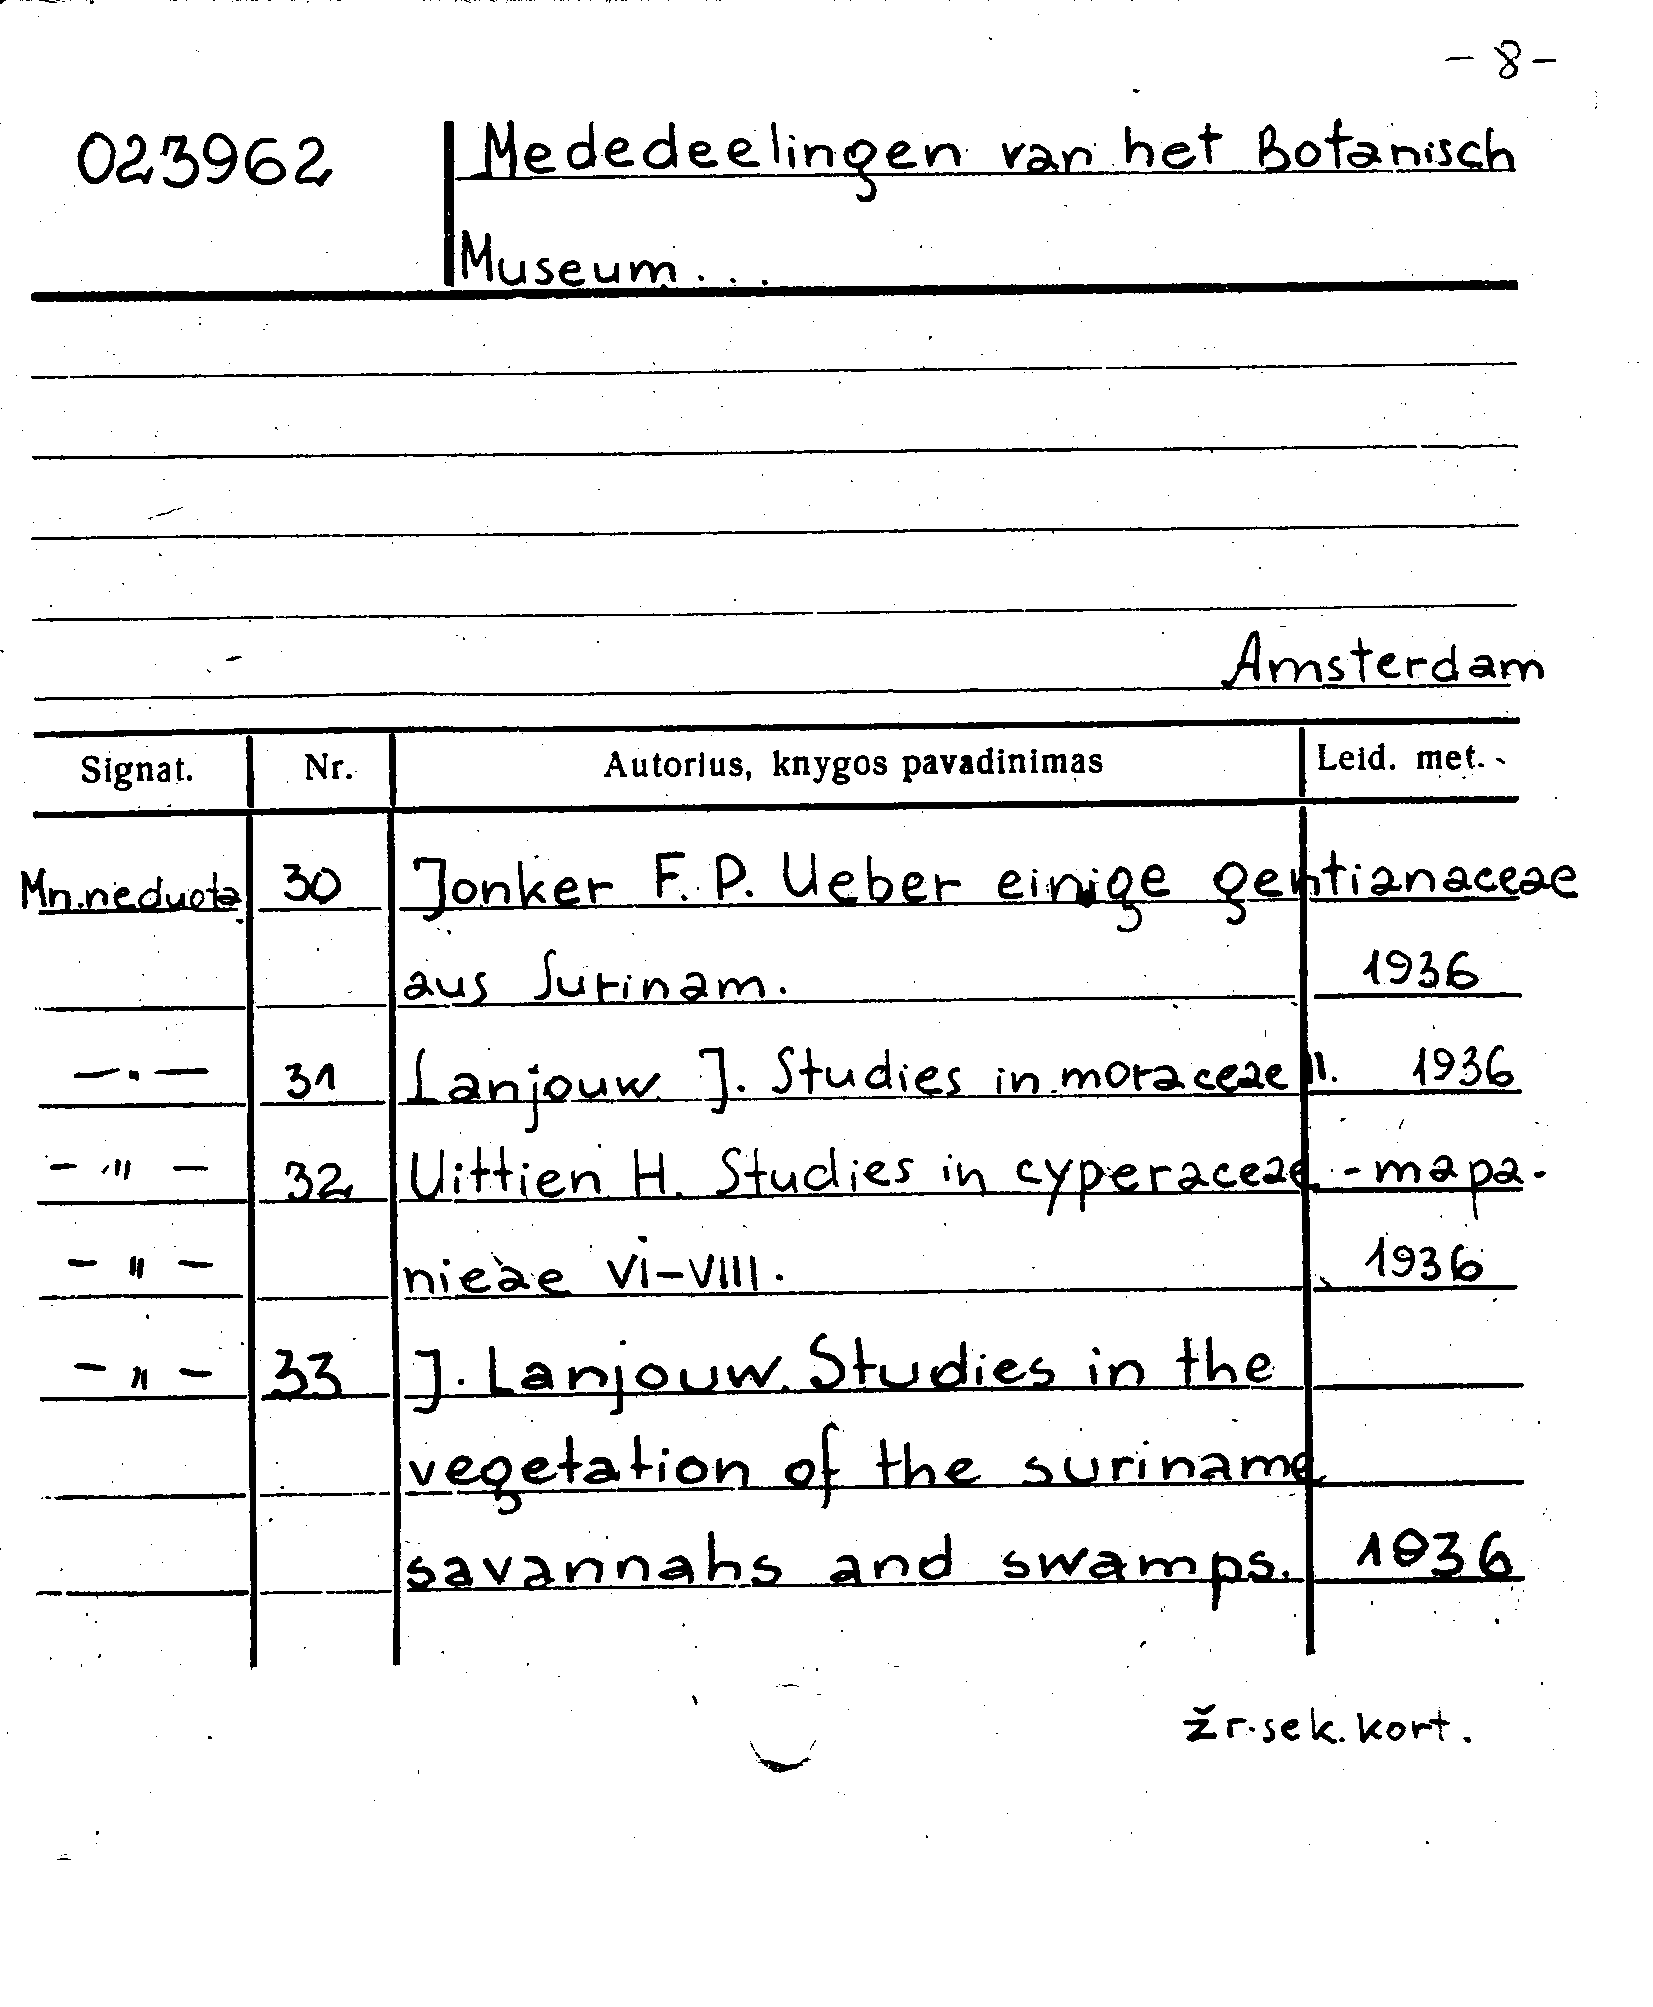 - 8 -
023962 Mededeelingen van het Botanisch
Museum...
Amsterdam
Signat. Nr. Autorius, knygos pavadinimas Leid. met.
Mn.neduota 30 Jonker F. P. Ueber einige gentianaceae
aus Surinam. 1936
— . — 31 Lanjouw J. Studies in moraceae II. 1936
— " — 32 Uittien H. Studies in cyperaceae - mapa-
— " — nieae VI-VIII. 1936
— " — 33 J. Lanjouw. Studies in the
vegetation of the suriname
savannahs and swamps. 1936
žr. sek. kort.